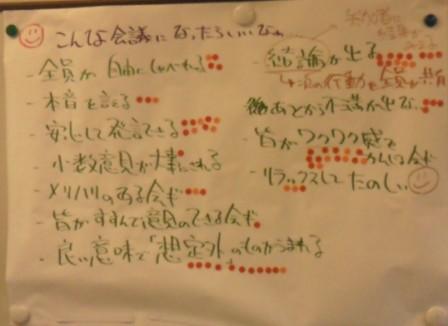 こんな会議になったらいいなぁ
- 全員が自由にしゃべれる
- 本音を言える
- 安心して発言できる
- 小数意見が大事にされる
- メリハリのある会ギ
- 皆がすすんで意見のできる会ギ
- 良い意味で「想定外」のものがうまれる
- 結論が出る
↳次の行動を全員が共有
あとから不満が出ない
- 皆がワクワク感で
会ギ
- リラックスしてたのしい